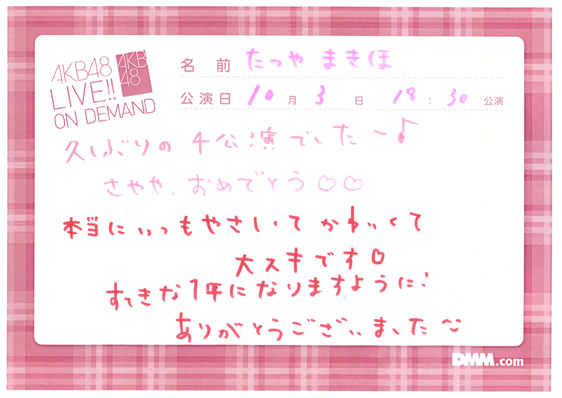 AKB48
LIVE!!
ON DEMAND
AKB
48
名 前 たつや まきほ
公演日 10 月 3 日 18 : 30 公演
久しぶりの 4公演でした〜♪
さやや、おめでとう♡♡
本当にいつもやさしくて かわいくて
大スキです♡
すてきな1年になりますように!
ありがとうございました
DMM.com